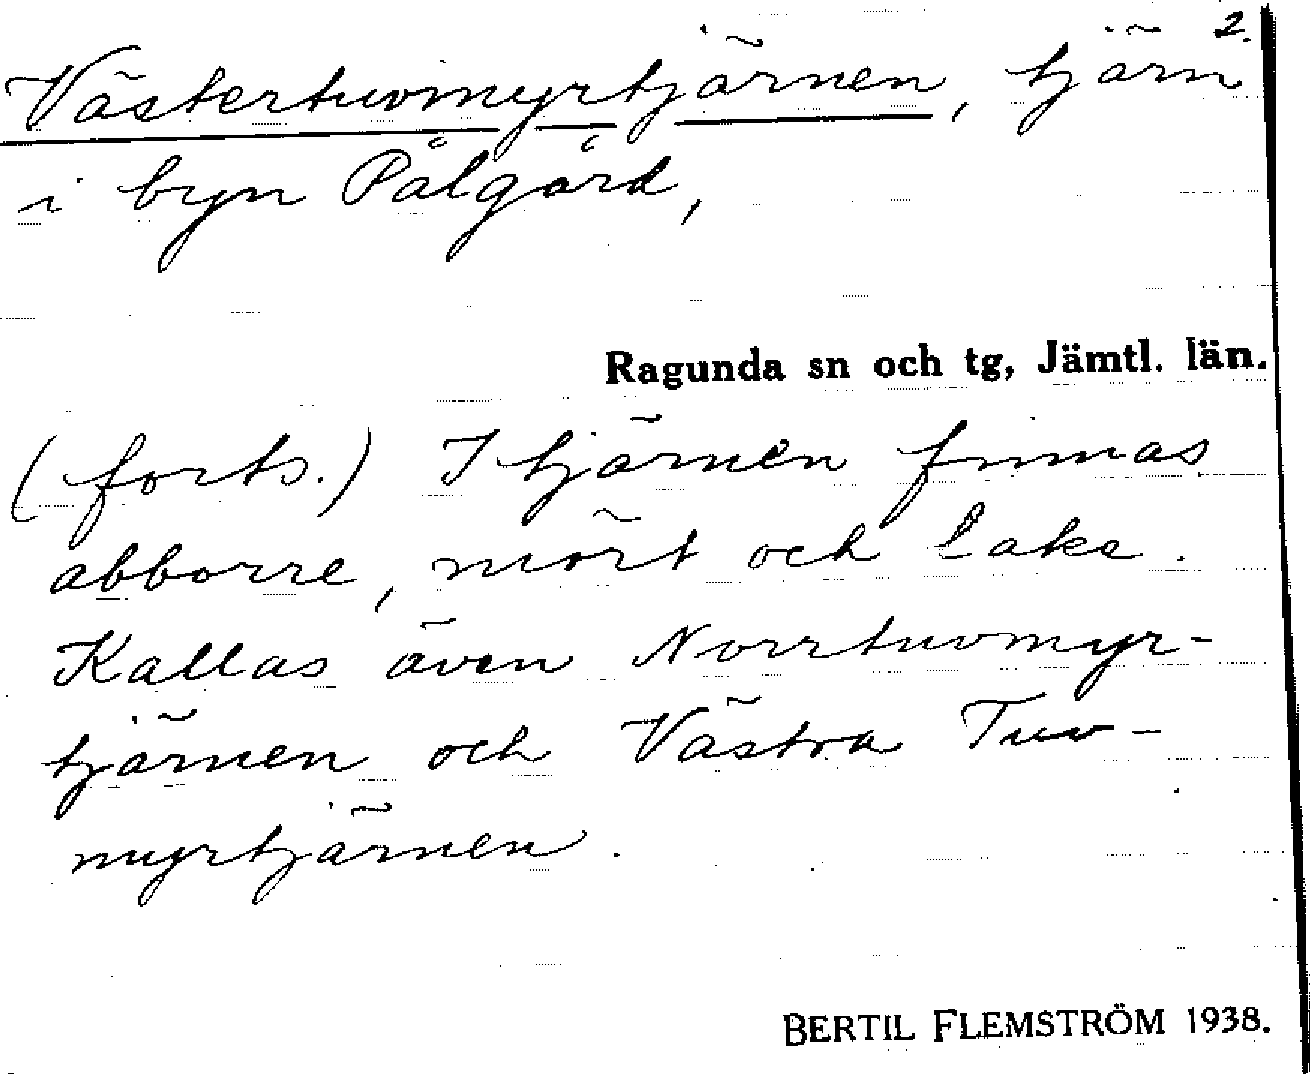 2.
Västertuvmyrtjärnen, tjärn
i byn Pålgård,
Ragunda sn och tg, Jämtl. län.
(forts.) I tjärnen finnas
abborre, mört och lake.
Kallas även Norrtuvmyr-
tjärnen och Västra Tuv-
myrtjärnen.
BERTIL FLEMSTRÖM 1938.